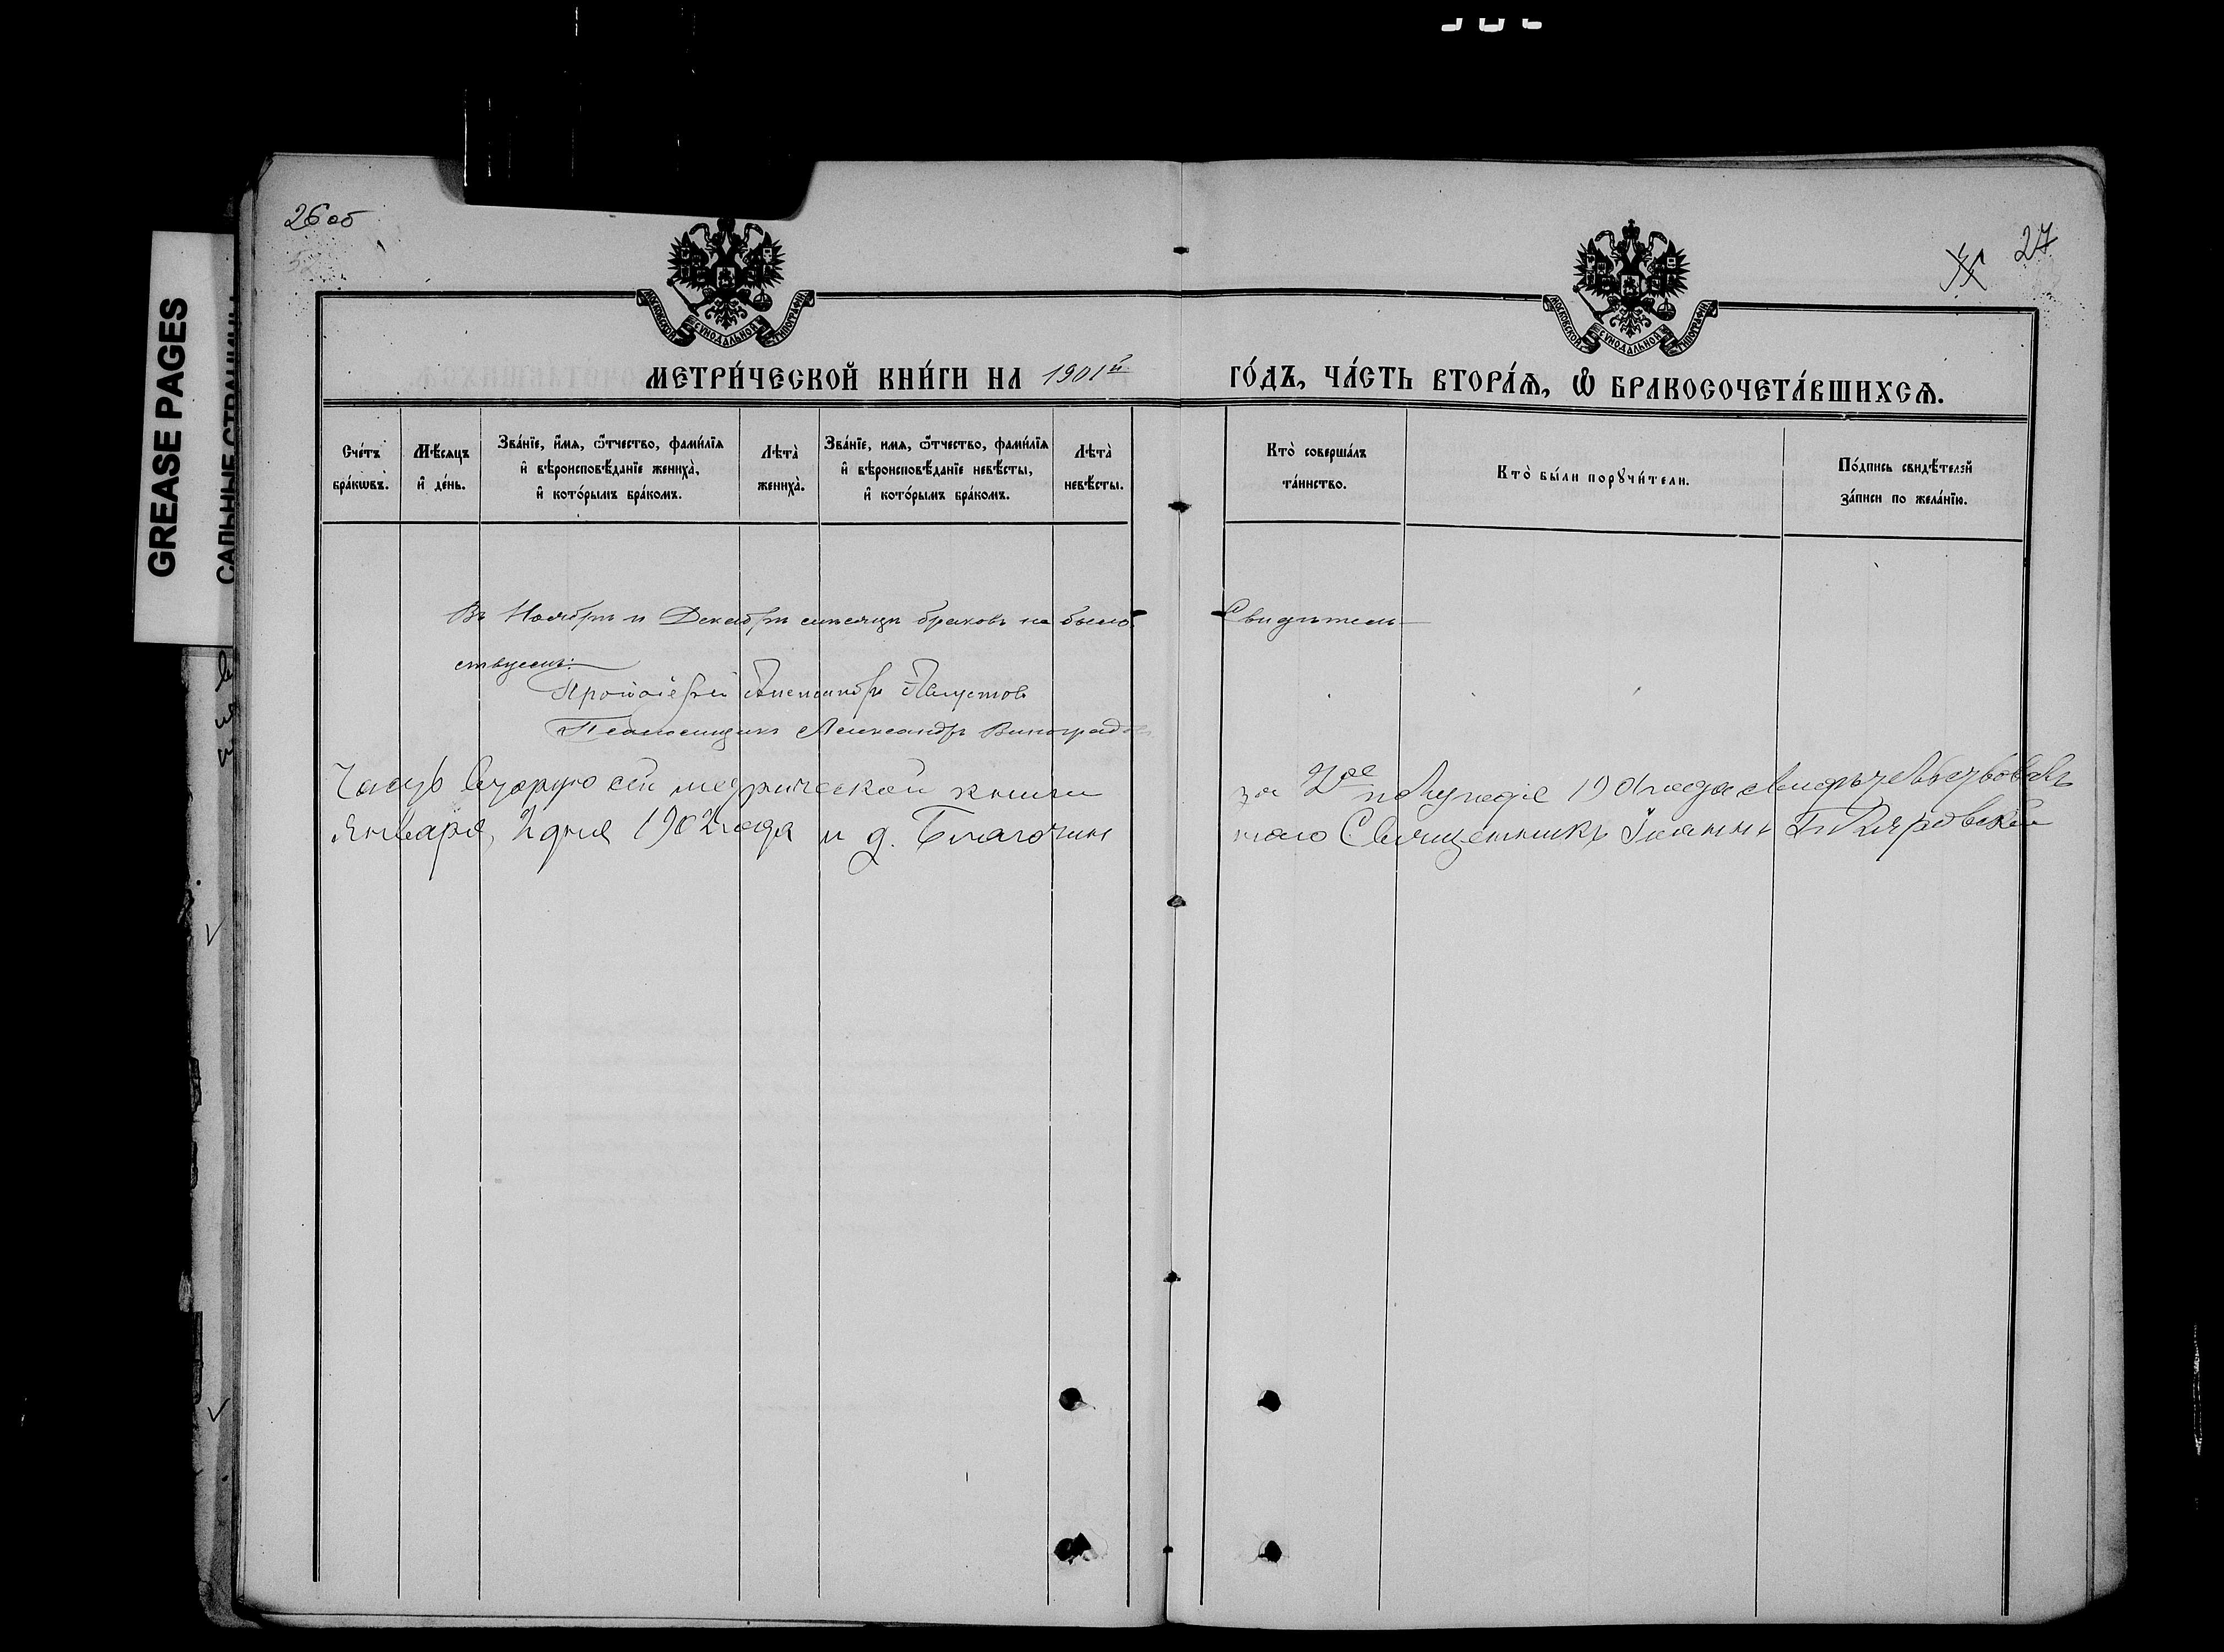 26 об
27
GREASE PAGES
САЛЬНЫЕ СТРАНИЦЫ
МОСКОВСКОЙ СѴНОДАЛЬНОЙ ТИПОГРАФІИ
МОСКОВСКОЙ СѴНОДАЛЬНОЙ ТИПОГРАФІИ
МЕТРИ́ЧЕСКОЙ КНИ́ГИ НА 1901й ГО́ДЪ, ЧА́СТЬ ВТОРА́Я, Ѽ БРАКОСОЧЕТА́ВШИХСЯ.
Сче́тъ бра́кѡвъ.
Мѣ́сяцъ и де́нь.
Зва́нїе, и҆́мя, ѻ҆́тчество, фами́лїя и҆ вѣроисповѣ́данїе жениха̀, и҆ кото́рымъ бра́комъ.
Лѣта̀ жениха̀.
Зва́нїе, и҆мя, ѻ҆́тчество, фами́лїя и҆ вѣроисповѣ́данїе невѣ́сты, и҆ кото́рымъ бра́комъ.
Лѣта̀ невѣ́сты.
Кто̀ соверша́лъ та́инство.
Кто̀ бы́ли порꙋчи́тели.
По́дпись свидѣ́телей за́писи по жела́нїю.
Въ Ноябрѣ и Декабрѣ мѣсяцѣ браковъ не было. Свидѣтель-
ствуемъ:
Протоіерей Александръ
Псаломщикъ Александръ Виноградовъ
Часть Вторую сей метрической книги за 2ое полугодіе 1901 года свидѣтельствовалъ
Января, 2 дня 1902 года и д. Благочин наго Священникъ Іоаннъ